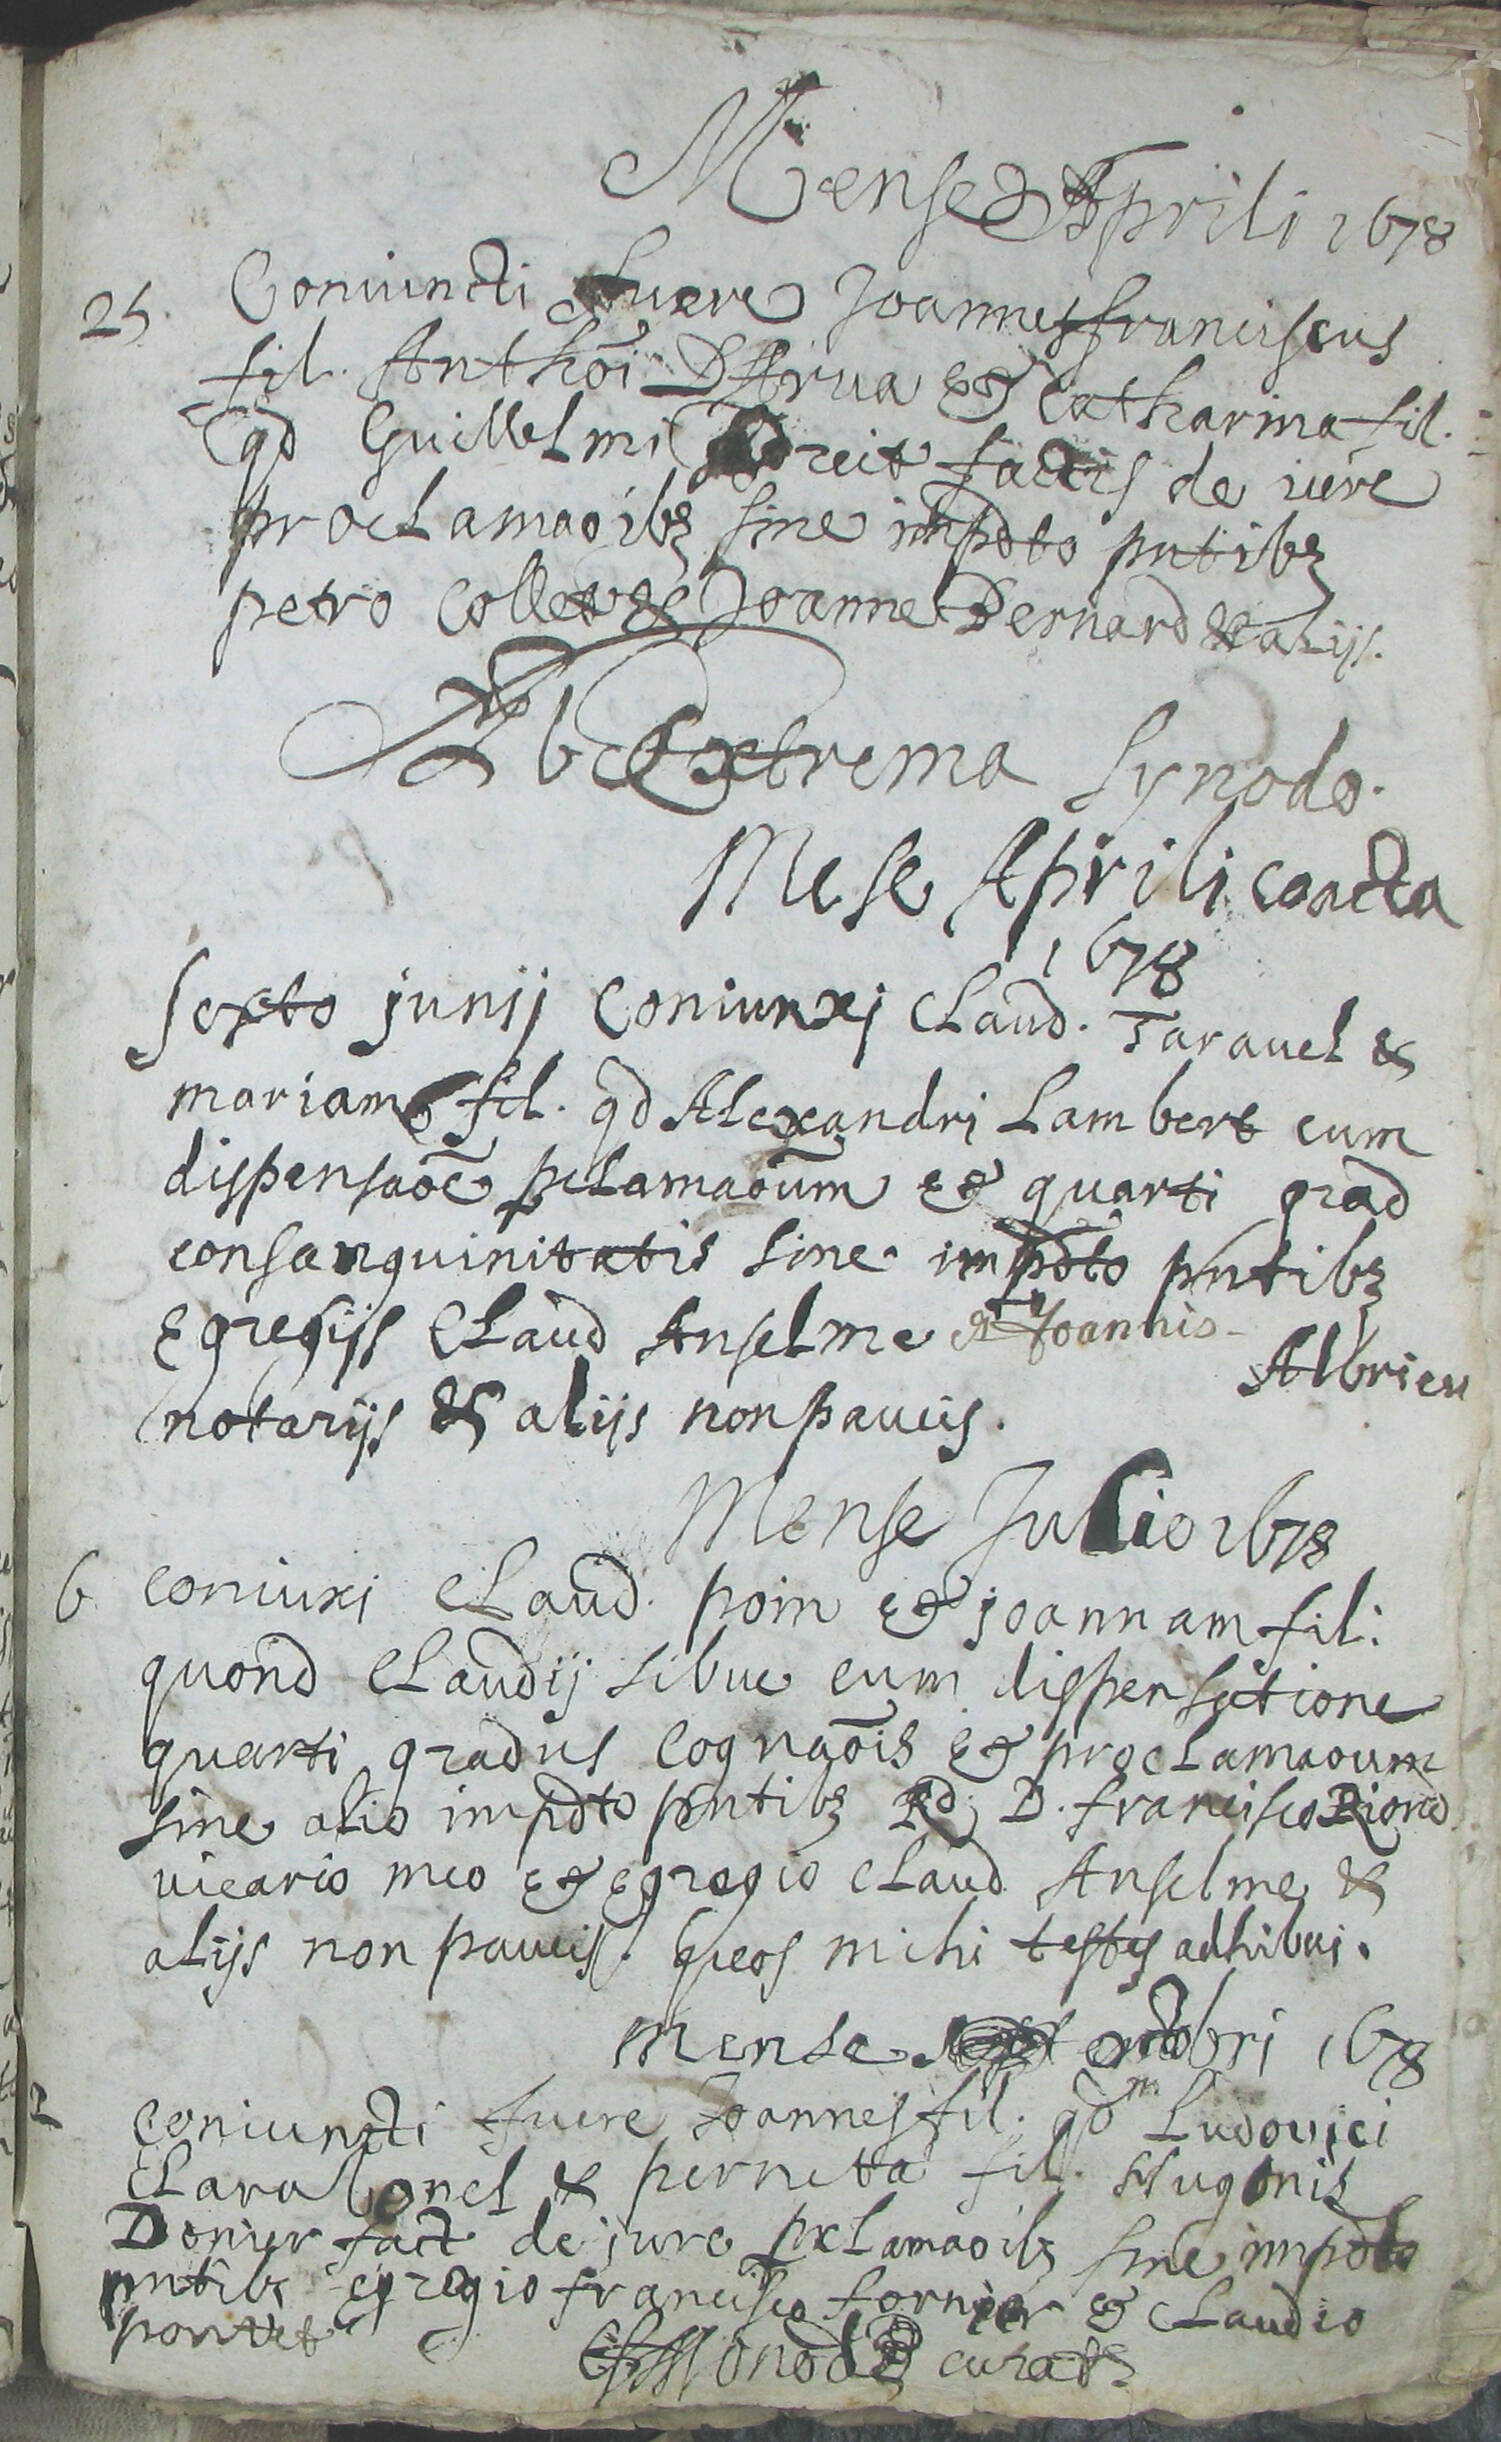 Mense Aprili 1678
25. Coniuncti fuere Joannes franciscus
fil. Anthoi DArua et Catharina fil.
qd Guillelmi factis de iure
proclamaoibz sine impdto pntibz
petro Collet et Joanne Bernard et alijs.
Ab Extrema Synodo.
Mese Aprili coacta
1678
Sexto junij Coniunxi Claud. Tarauel &
mariam fil. qd Alexandri Lambert cum
dispensaoe pclamaoum et quarti grad
consanguinitatis sine impdto pntibz
Egregijs Claud Anselme et Joannis
Albrieu
notarijs & alijs non paucis.
Mense Julio 1678
6 coniuxi Claud. poin et joannam fil:
quond Claudij Sibue cum dispensatione
quarti gradus cognaois et proclamaoum
sine alio impdto pntibz Rd. D. francisco Riond
vicario meo et egregio Claud Anselme &
alijs non paucis. queos mihi testes adhibui.
mense octobri 1678
coniuncti fuere Joannes fil. qdm Ludovici
Clara & perneta fil. Hugonis
Donier fact de jure pclamaoibz sine impdto
pntibz egregio francisco fornier & Claudio
pontet
curat